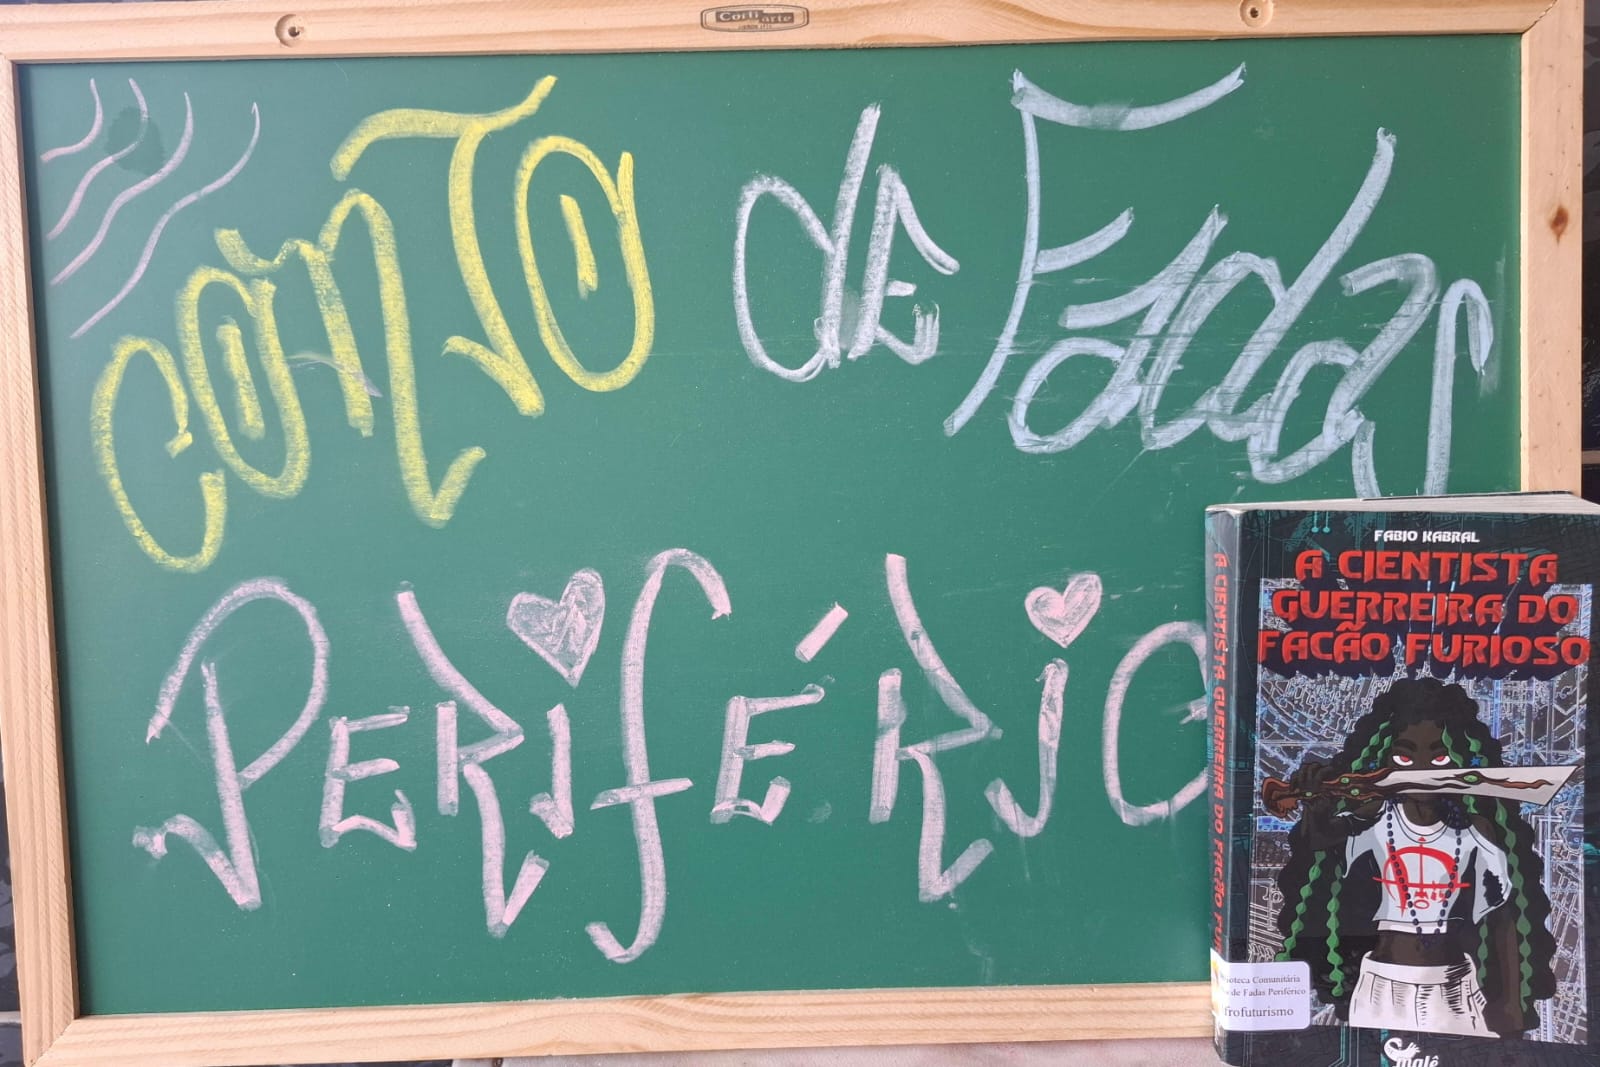 Corti arte
CONTO de Fadas
PERIFÉRICO
FABIO KABRAL
A CIENTISTA
GUERREIRA DO
FACÃO FURIOSO
A CIENTISTA GUERREIRA DO FACÃO FUR
ioteca Comunitária
de Fadas Periférico
frofuturismo
malê